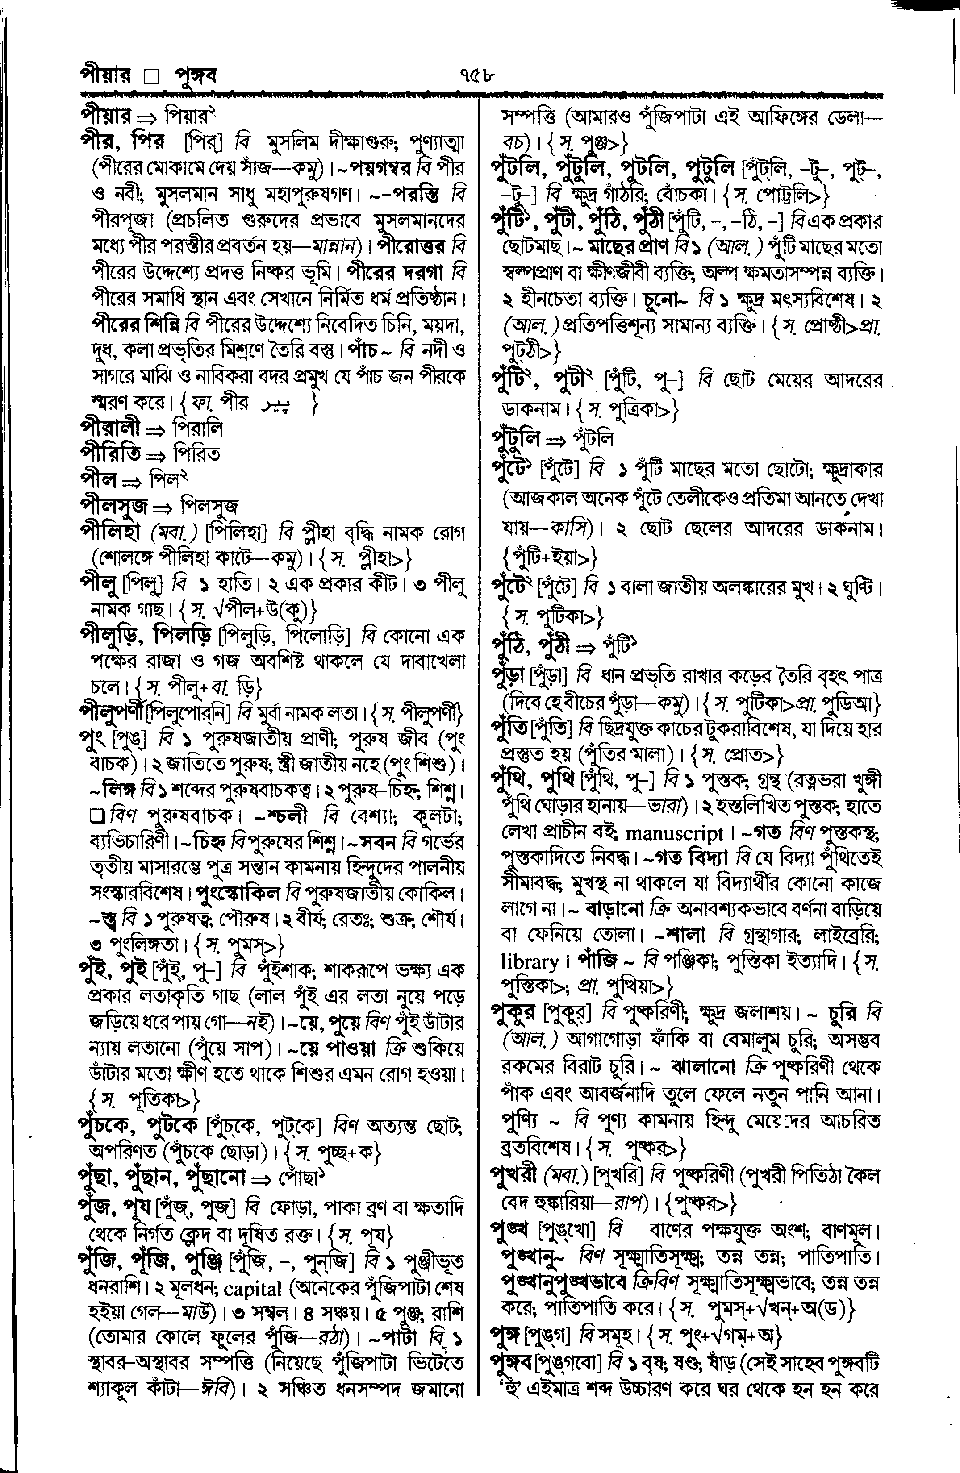 পীয়ার □ পুঙ্গব
৭৫৮
পীয়ার ⇒ পিয়ার২
পীর, পির [পির্] বি মুসলিম দীক্ষাগুরু; পুণ্যাত্মা
(পীরের মোকামে দেয় সাঁজ—কমু)। ~পয়গম্বর বি পীর
ও নবী; মুসলমান সাধু মহাপুরুষগণ। ~-পরস্তি বি
পীরপূজা (প্রচলিত গুরুদের প্রভাবে মুসলমানদের
মধ্যে পীর পরস্তীর প্রবর্তন হয়—মান্নান)। পীরোত্তর বি
পীরের উদ্দেশ্যে প্রদত্ত নিষ্কর ভূমি। পীরের দরগা বি
পীরের সমাধি স্থান এবং সেখানে নির্মিত ধর্ম প্রতিষ্ঠান।
পীরের শিন্নি বি পীরের উদ্দেশ্যে নিবেদিত চিনি, ময়দা,
দুধ, কলা প্রভৃতির মিশ্রণে তৈরি বস্তু। পাঁচ ~ বি নদী ও
সাগরে মাঝি ও নাবিকরা বদর প্রমুখ যে পাঁচ জন পীরকে
স্মরণ করে। {ফা. পীর پیر }
পীরালী ⇒ পিরালি
পীরিতি ⇒ পিরিত
পীল ⇒ পিল২
পীলসুজ ⇒ পিলসুজ
পীলিহা (মবা.) [পিলিহা] বি প্লীহা বৃদ্ধি নামক রোগ
(শোলঙ্গে পীলিহা কাটে—কমু)। {স. প্লীহা>}
পীলু [পিলু] বি ১ হাতি। ২ এক প্রকার কীট। ৩ পীলু
নামক গাছ। {স. √পীল+উ(কু)}
পীলুড়ি, পিলড়ি [পিলুড়ি, পিলোড়ি] বি কোনো এক
পক্ষের রাজা ও গজ অবশিষ্ট থাকলে যে দাবাখেলা
চলে। {স. পীলু+বা. ড়ি}
পীলুপর্ণী [পিলুপোর্‌নি] বি মুর্বা নামক লতা। {স. পীলুপর্ণী}
পুং [পুঙ] বি ১ পুরুষজাতীয় প্রাণী; পুরুষ জীব (পুং
বাচক)। ২ জাতিতে পুরুষ; স্ত্রী জাতীয় নহে (পুং শিশু)।
~লিঙ্গ বি ১ শব্দের পুরুষবাচকত্ব। ২ পুরুষ-চিহ্ন; শিশ্ন।
❑ বিণ পুরুষবাচক। ~শ্চলী বি বেশ্যা; কুলটা;
ব্যভিচারিণী। ~চিহ্ন বি পুরুষের শিশ্ন। ~সবন বি গর্ভের
তৃতীয় মাসারম্ভে পুত্র সন্তান কামনায় হিন্দুদের পালনীয়
সংস্কারবিশেষ। পুংস্কোকিল বি পুরুষজাতীয় কোকিল।
~স্ত্ব বি ১ পুরুষত্ব; পৌরুষ। ২ বীর্য; রেতঃ; শুক্র; শৌর্য।
৩ পুংলিঙ্গতা। {স. পুমস্>}
পুঁই, পুই [পুঁই, পু–] বি পুঁইশাক; শাকরূপে ভক্ষ্য এক
প্রকার লতাকৃতি গাছ (লাল পুঁই এর লতা নুয়ে পড়ে
জড়িয়ে ধরে পায় গো—নই)। ~য়ে, পুয়ে বিণ পুঁই ডাঁটার
ন্যায় লতানো (পুঁয়ে সাপ)। ~য়ে পাওয়া ক্রি শুকিয়ে
ডাঁটার মতো ক্ষীণ হতে থাকে শিশুর এমন রোগ হওয়া।
{স. পূতিকা>}
পুঁচকে, পুটকে [পুঁচ্‌কে, পুট্‌কে] বিণ অত্যন্ত ছোট;
অপরিণত (পুঁচকে ছোড়া)। {স. পুচ্ছ+ক}
পুঁছা, পুঁছান, পুঁছানো ⇒ পোঁছা১
পুঁজ, পুয [পুঁজ্, পুজ্] বি ফোড়া, পাকা ব্রণ বা ক্ষতাদি
থেকে নির্গত ক্লেদ বা দূষিত রক্ত। {স. পূয}
পুঁজি, পুঁজি, পুঞ্জি [পুঁজি, –, পুন্‌জি] বি ১ পুঞ্জীভূত
ধনরাশি। ২ মূলধন; capital (অনেকের পুঁজিপাটা শেষ
হইয়া গেল—মাউ)। ৩ সম্বল। ৪ সঞ্চয়। ৫ পুঞ্জ; রাশি
(তোমার কোলে ফুলের পুঁজি—রঠা)। ~পাটা বি ১
স্থাবর-অস্থাবর সম্পত্তি (নিয়েছে পুঁজিপাটা ভিটেতে
শ্যাকুল কাঁটা—ঈবি)। ২ সঞ্চিত ধনসম্পদ জমানো
সম্পত্তি (আমারও পুঁজিপাটা এই আফিঙ্গের ডেলা—
বচ)। {স. পুঞ্জ>}
পুঁটলি, পুঁটুলি, পুটলি, পুটুলি [পুঁট্‌লি, –টু–, পুট্–,
–টু–] বি ক্ষুদ্র গাঁঠরি; বোঁচকা। {স. পোট্টলি>}
পুঁটি১, পুঁটী, পুঁঠি, পুঁঠী [পুঁটি, –, –ঠি, –] বি এক প্রকার
ছোটমাছ। ~ মাছের প্রাণ বি ১ (আল.) পুঁটি মাছের মতো
স্বল্পপ্রাণ বা ক্ষীণজীবী ব্যক্তি; অল্প ক্ষমতাসম্পন্ন ব্যক্তি।
২ হীনচেতা ব্যক্তি। চুনো~ বি ১ ক্ষুদ্র মৎস্যবিশেষ। ২
(আল.) প্রতিপত্তিশূন্য সামান্য ব্যক্তি। {স. প্রোষ্ঠী>প্রা.
পুটঠী>}
পুঁটি২, পুটী২ [পুঁটি, পু–] বি ছোট মেয়ের আদরের
ডাকনাম। {স. পুত্রিকা>}
পুঁটুলি ⇒ পুঁটলি
পুঁটে১ [পুঁটে] বি ১ পুঁটি মাছের মতো ছোটো; ক্ষুদ্রাকার
(আজকাল অনেক পুঁটে তেলীকেও প্রতিমা আনতে দেখা
যায়—কাসি)। ২ ছোট ছেলের আদরের ডাকনাম।
{পুঁটি+ইয়া>}
পুঁটে২ [পুঁটে] বি ১ বালা জাতীয় অলঙ্কারের মুখ। ২ ঘুণ্টি।
{স. পুটিকা>}
পুঁঠি, পুঁঠী ⇒ পুঁটি১
পুঁড়া [পুঁড়া] বি ধান প্রভৃতি রাখার কড়ের তৈরি বৃহৎ পাত্র
(দিবে হে বীচের পুঁড়া—কমু)। {স. পুটিকা>প্রা. পুডিআ}
পুঁতি [পুঁতি] বি ছিদ্রযুক্ত কাচের টুকরাবিশেষ, যা দিয়ে হার
প্রস্তুত হয় (পুঁতির মালা)। {স. প্রোত>}
পুঁথি, পুথি [পুঁথি, পু–] বি ১ পুস্তক; গ্রন্থ (রত্নভরা খুঙ্গী
পুঁথি ঘোড়ার হানায়—ভারা)। ২ হস্তলিখিত পুস্তক; হাতে
লেখা প্রাচীন বই; manuscript। ~গত বিণ পুস্তকস্থ;
পুস্তকাদিতে নিবদ্ধ। ~গত বিদ্যা বি যে বিদ্যা পুঁথিতেই
সীমাবদ্ধ; মুখস্থ না থাকলে যা বিদ্যার্থীর কোনো কাজে
লাগে না। ~ বাড়ানো ক্রি অনাবশ্যকভাবে বর্ণনা বাড়িয়ে
বা ফেনিয়ে তোলা। ~শালা বি গ্রন্থাগার; লাইব্রেরি;
library। পাঁজি ~ বি পঞ্জিকা; পুস্তিকা ইত্যাদি। {স.
পুস্তিকা>; প্রা. পুথিয়া>}
পুকুর [পুকুর্] বি পুষ্করিণী; ক্ষুদ্র জলাশয়। ~ চুরি বি
(আল.) আগাগোড়া ফাঁকি বা বেমালুম চুরি; অসম্ভব
রকমের বিরাট চুরি। ~ ঝালানো ক্রি পুষ্করিণী থেকে
পাঁক এবং আবর্জনাদি তুলে ফেলে নতুন পানি আনা।
পুণ্যি ~ বি পুণ্য কামনায় হিন্দু মেয়েদের আচরিত
ব্রতবিশেষ। {স. পুষ্কর>}
পুখরী (মবা.) [পুখরি] বি পুষ্করিণী (পুখরী পিতিঠা কৈল
বেদ হুঙ্কারিয়া—রাপ)। {পুষ্কর>}
পুঙ্খ [পুঙ্‌খো] বি বাণের পক্ষযুক্ত অংশ; বাণমূল।
পুঙ্খানু~ বিণ সূক্ষ্মাতিসূক্ষ্ম; তন্ন তন্ন; পাতিপাতি।
পুঙ্খানুপুঙ্খভাবে ক্রিবিণ সূক্ষ্মাতিসূক্ষ্মভাবে; তন্ন তন্ন
করে; পাতিপাতি করে। {স. পুমস্+√খন্+অ(ড)}
পুঙ্গ [পুঙ্‌গ] বি সমূহ। {স. পুং+√গম্+অ}
পুঙ্গব [পুঙ্‌গবো] বি ১ বৃষ; ষণ্ড; ষাঁড় (সেই সাহেব পুঙ্গবটি
‘হুঁ’ এইমাত্র শব্দ উচ্চারণ করে ঘর থেকে হন হন করে